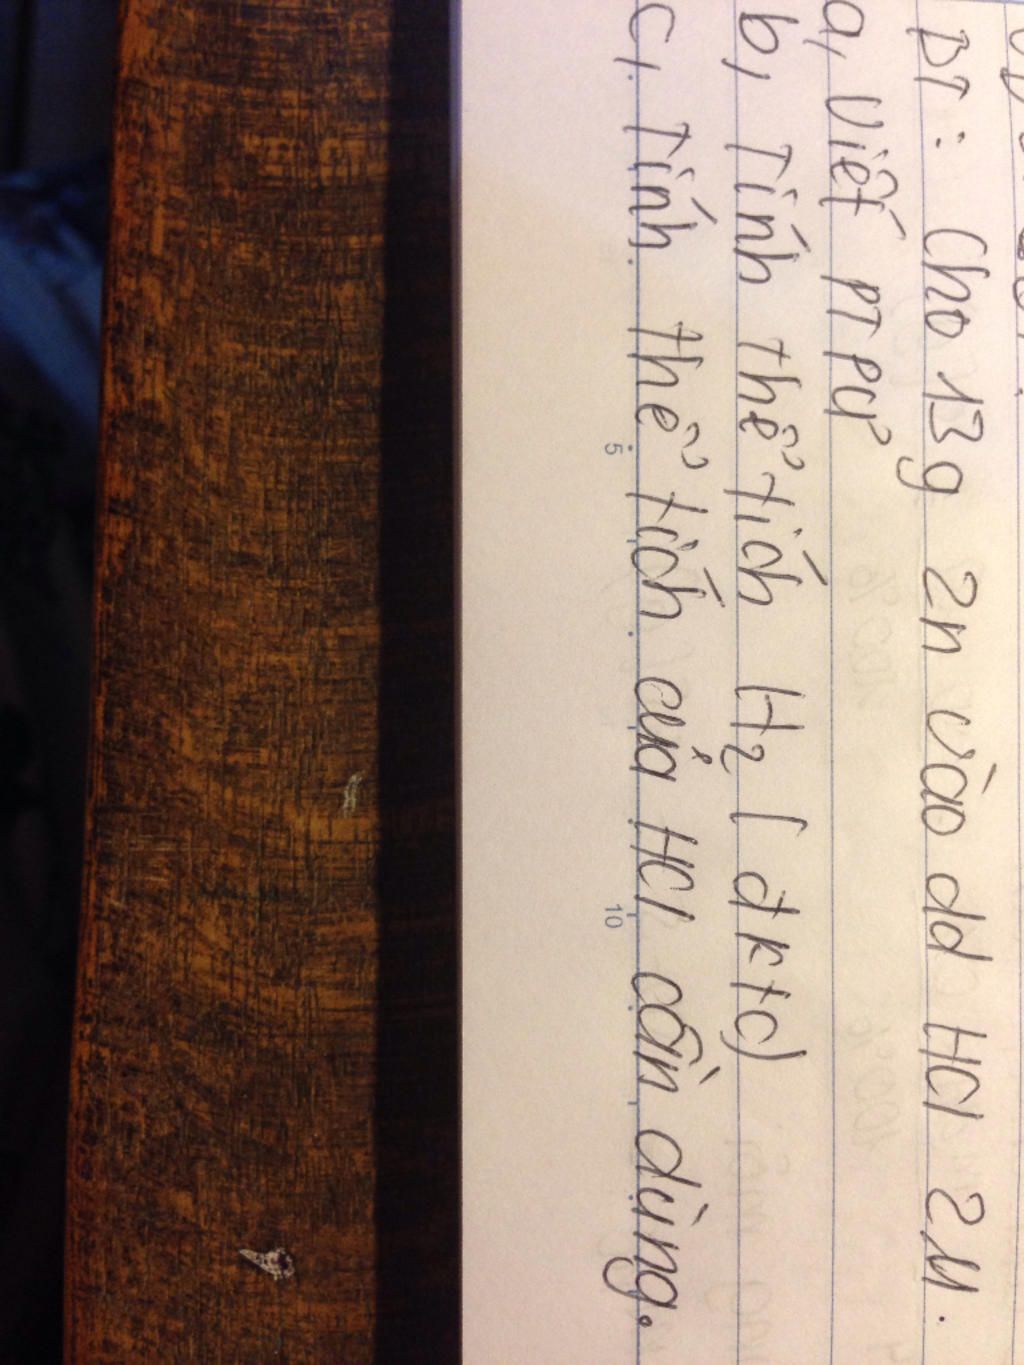 BT: Cho 13g Zn vào dd HCl 2M.
a, Viết PTPƯ
b, Tính thể tích H2 (đktc)
c, Tính thể tích của HCl cần dùng.
5 10